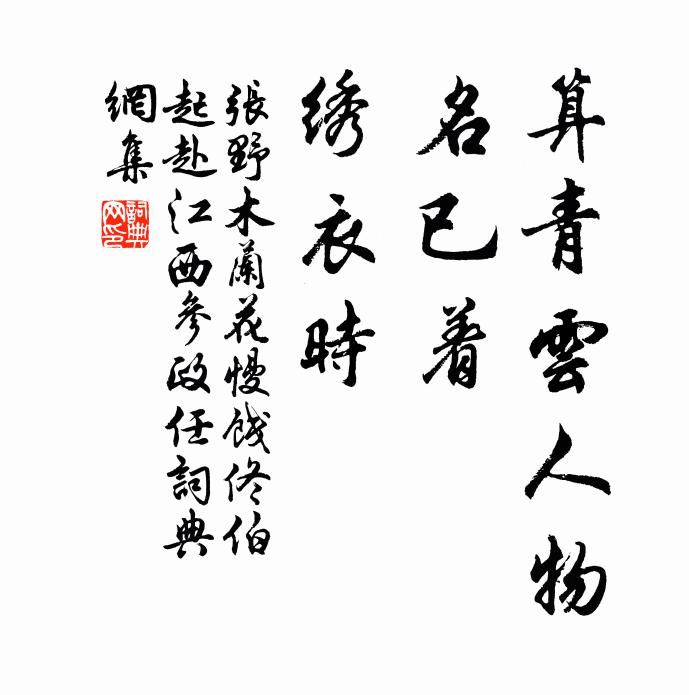 算青雲人物
名已着
绣衣時
張野木蘭花慢餞佟伯
起赴江西參政任詞典
網集
詞典網印